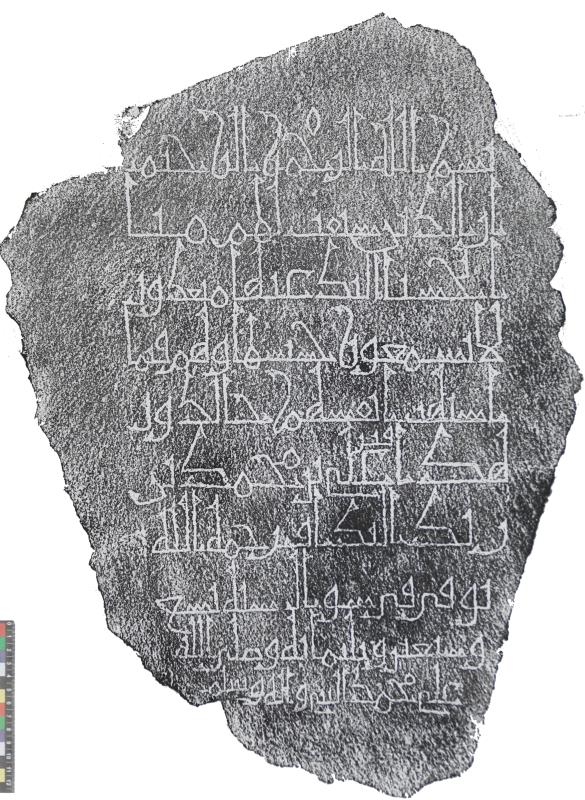 بسم الله الرحمن الرحيم
ان الذين سبقت لهم منا
الحسنى اولئك عنها مبعدون
لا يسمعون حسيسها وهم فيما
اشتهت انفسهم خلدون
هذا قبر علي بن محمد بن
رحمه الله
توفي في شوال سنة
وثلثمائة وصلى الله
على محمد النبي واله وسلم